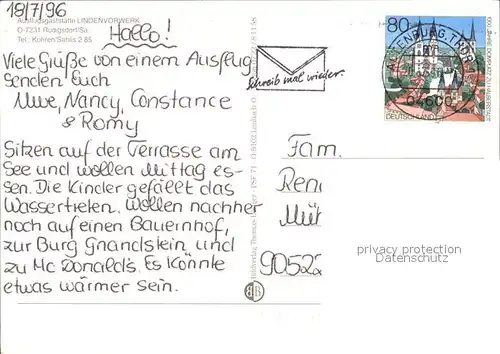 18/7/96
Ausflugsgaststätte LINDENVORWERK
O-7231 Rüdigsdorf/Sa.
Tel.: Kohren/Sahlis 2 85
Hallo!
Viele Grüße von einem Ausflug
senden Euch
Uwe, Nancy, Constance
& Romy
Sitzen auf der Terrasse am
See und wollen Mittag es-
sen. Die Kinder gefällt das
Wassertreten. Wollen nachher
noch auf einen Bauernhof,
zur Burg Gnandstein und
zu Mc Donald's. Es könnte
etwas wärmer sein.
Schreib mal wieder.
80
ALTENBURG, THÜR
04600
DEUTSCHLAND
Fam.
Ren
Mü
90522
privacy protection
Datenschutz